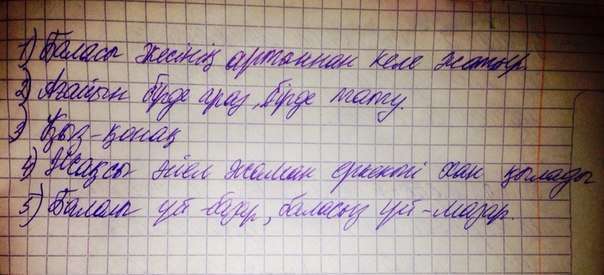 1) Баласы әкесінің артыннан келе жатыр.
2) Ағайын бірде араз, бірде тату.
3) Қыз-қонақ
4) Жақсы әйел жаман еркекті хан қылады
5) Балалы үй-базар, баласыз үй-мазар.